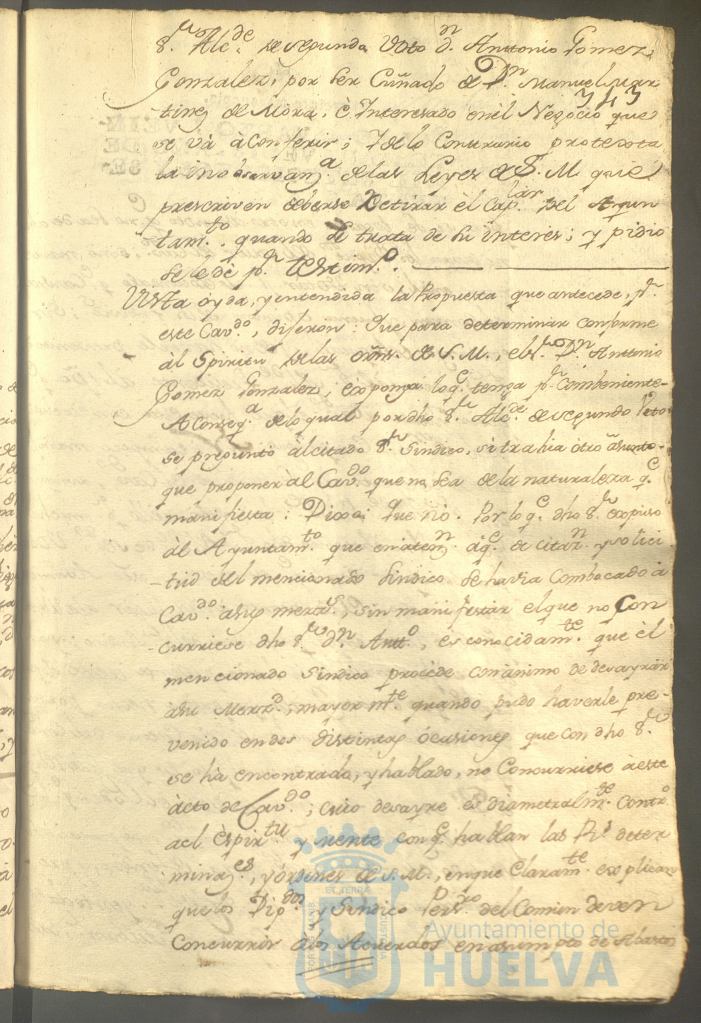 S.r Alc.de de segundo Voto D.n Anttonio Gomez
Gonzalez, por ser Cuñado de D.n Manuel Mar-
343
tinez de Mora, è Interesado en el Negocio que
se và à conferir; Y de lo Contrario protexta
la inobservan.a de las Leyes de S. M. que
prescriven deberse Retirar èl Cap.lar del Ayun
tam.to quando se trata de su interes; y pidio
se le dè p.r testim.o
Vista oyda, y entendida la Propuesta que antecede, p.r
este Cav.do, dijeron: Que para determinar conforme
àl Spiritu de las orñs. de S. M., el S.r D.n Anttonio
Gomez Gonzalez, exponga lo q.e tenga p.r combeniente-
A conseq.a de lo qual por dho S.r Alc.de de segundo Voto
se preguntò àl citado S.r Sindico, si trahia otro asunto-
que proponer àl Cav.do que no sea de la naturaleza q.e
manifiesta: Dixo: Que nò. Por lo q.e dho S.r expuso
àl Ayuntam.to que en aten.n à q.e de citaz.n y solici
-tud del mencionado Sindico se havia combocado à
Cav.do à sus merz.s, sin manifestar el que no Con
curriese dho S.r D.n Antt.o, es conocidam.te que èl
mencionado Sindico procède con ànimo de desayrar
à su Merz.d, mayor m.te quando pudo haverle pre-
venido en dos distintas òcasiones que con dho S.r
se hà encontrado, y hablado, no Concurriese à este
àcto de Cav.do; cuio desayre es diametralm.te Contr.o
al Espir.tu y mente con q.e hablan las R.s deter
minaz.es, y órdenes de S. M., en que Claram.te explican
que los Dip.dos y Sindico Pers.ro del Comun deven
Concurrir à los Acuerdos en asumpto de Abastos
Ayuntamiento de
HUELVA